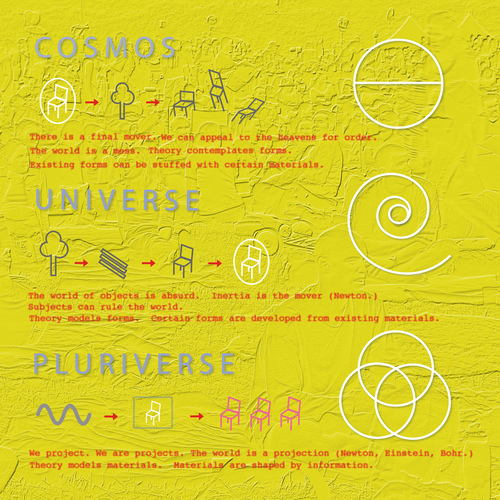 COSMOS
There is a final mover. We can appeal to the heavens for order.
The world is a mess. Theory contemplates forms.
Existing forms can be stuffed with certain Materials.
UNIVERSE
The world of objects is absurd. Inertia is the mover (Newton.)
Subjects can rule the world.
Theory models forms. Certain forms are developed from existing materials.
PLURIVERSE
We project. We are projects. The world is a projection (Newton, Einstein, Bohr.)
Theory models materials. Materials are shaped by information.